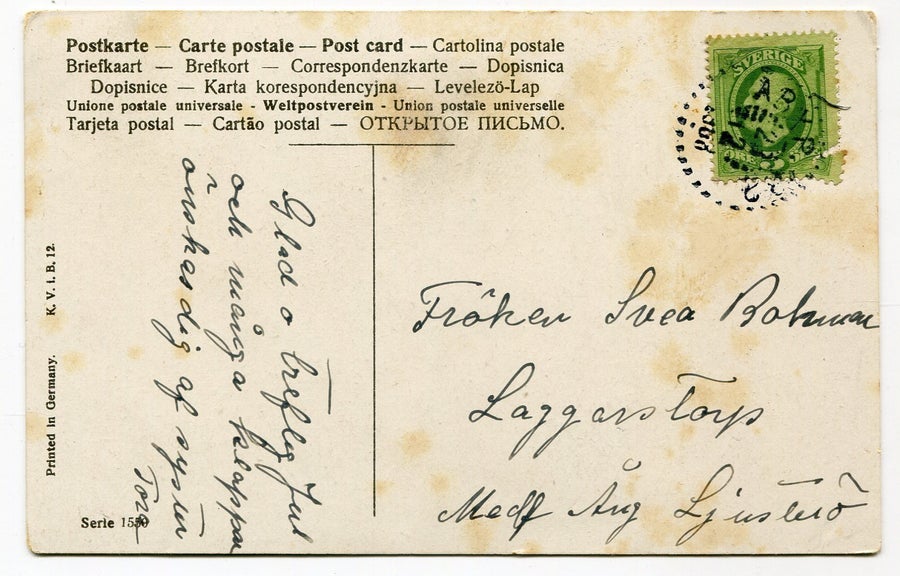 Postkarte — Carte postale — Post card — Cartolina postale
Briefkaart — Brefkort — Correspondenzkarte — Dopisnica
Dopisnice — Karta korespondencyjna — Levelezö-Lap
Unione postale universale - Weltpostverein - Union postale universelle
Tarjeta postal — Cartão postal — ОТКРЫТОЕ ПИСЬМО.
SVERIGE
Glad o treflig Jul
och många klappar
önskas dig af syster
Tora
Fröken Svea Bohman
Laggarstorp
Medf Ång Ljusterö
K. V. i. B. 12.
Printed in Germany.
Serie 1550